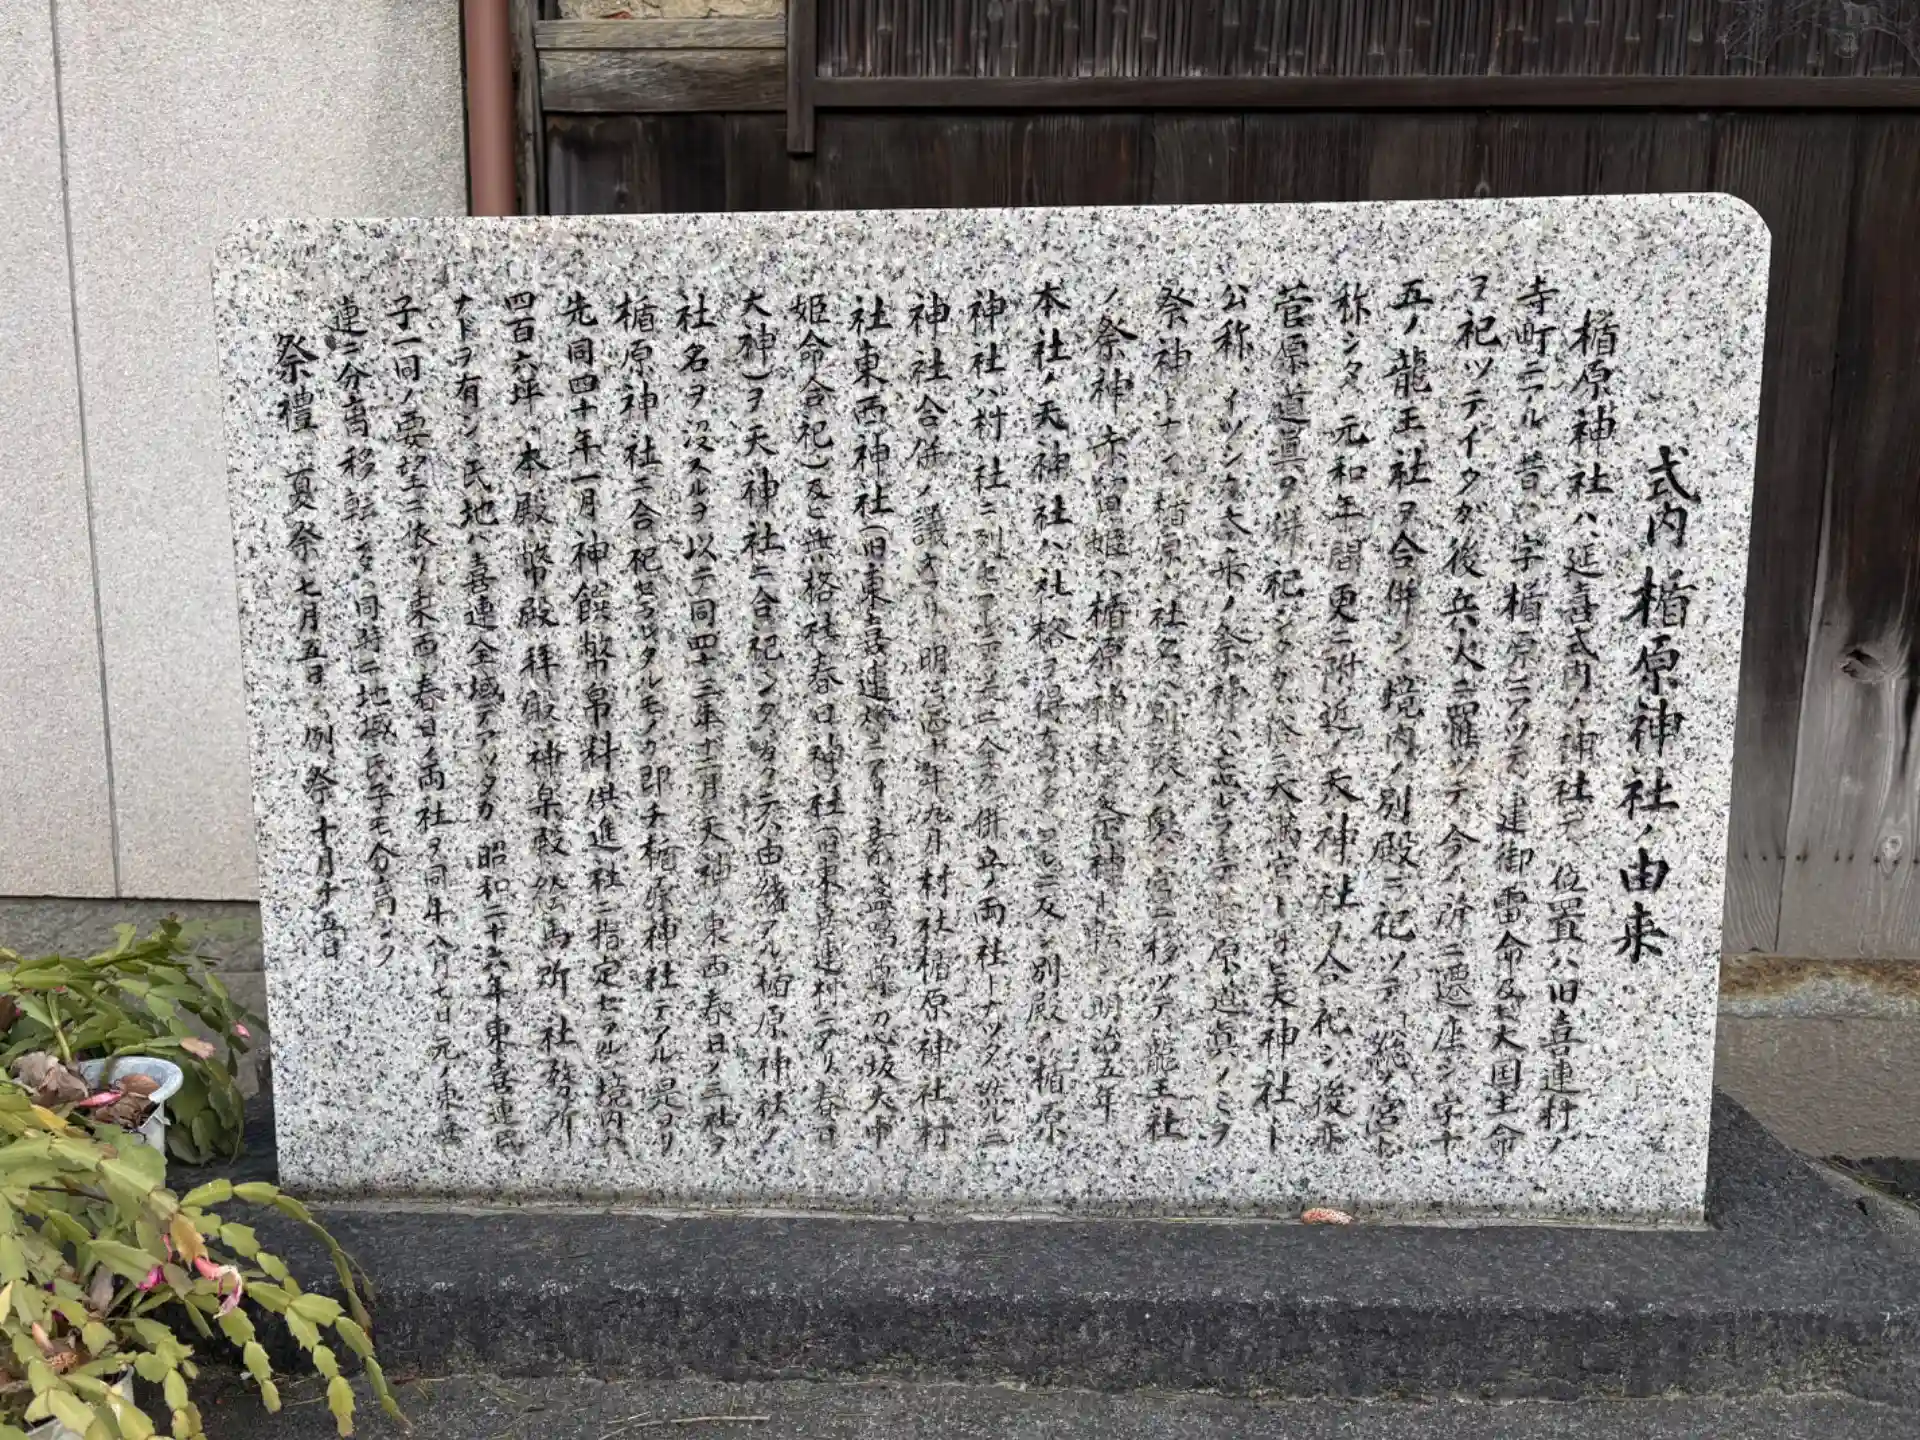 式内 楯原神社ノ由来
楯原神社ハ延喜式内ノ神社デ 位置ハ旧喜連村ノ
寺町ニアル 昔ハ字楯原ニアツテ 建御雷命及ビ大国主命
ヲ祀ツテイタガ後兵火ニ罹ツテ今ノ所ニ遷座シ字十
五ノ龍王社ヲ合併シ 境内ノ別殿ニ祀ツテ「総ノ宮ト
称シタ 元和年間更ニ附近ノ天神社ヲ合祀シ後亦
菅原道眞ヲ併祀シタガ 後ニ天満宮トカ天神社ト
公称 イツシカ本来ノ祭神ハ忘レラレテ菅原道眞ノミヲ
祭神トナシ 楯原ノ社名ハ別殿ノ奥ノ宮ニ移ツテ 龍王社
ノ祭神 赤留姫ハ楯原神社ノ祭神ト転シ 明治五年
本社ノ天神社ハ社格ヲ得 別殿ノ楯原
神社ハ村社ニ列セ 両社トナツタ 然ルニ
神社合併ノ議オコリ 明治四十年九月村社楯原神社村
社東西神社(旧東喜連 ニアリ 素盞嗚尊 忍坂大中
姫命合祀)及ビ無格社春日神社(旧東喜連村ニアリ 春日
大神)ヲ天神社ニ合祀シタガ 由緒アル楯原神社ノ
社名ヲ没スルヲ以テ同四十二年十二月天神 東西春日ノ三社ヲ
楯原神社ニ合祀セラレタルモノガ即チ楯原神社デアル 是ヨリ
先同四十年一月 神饌幣帛料供進社ニ指定セラル 境内ハ
四百六坪 本殿 幣殿 拝殿 神泉殿 絵馬所 社務所
ナドヲ有シ 氏地ハ喜連全域デアツタガ 昭和二十六年東喜連氏
子一同ノ要望ニ依リ東西 春日ノ両社ヲ同年八月七日元ノ東喜
連ニ分斎移転シタ 同時ニ地域氏子モ分斎シタ
祭禮 夏祭 七月五日 例祭 十月十五日